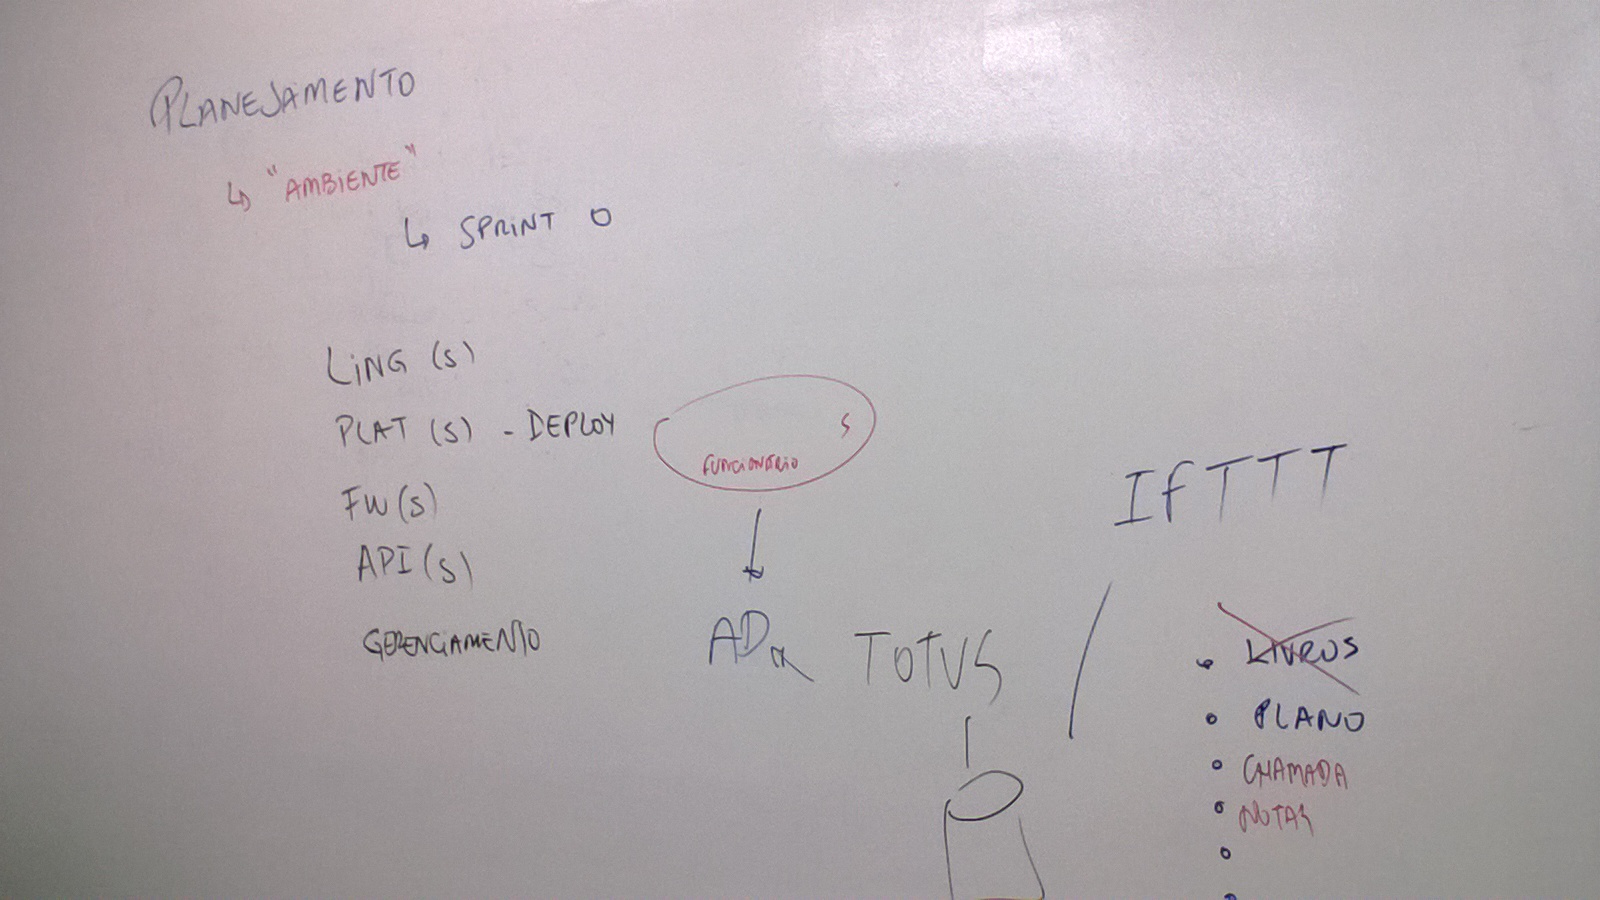 PLANEJAMENTO
↳ "AMBIENTE"
↳ SPRINT 0
LING (S)
PLAT (S) - DEPLOY
FW (S)
API (S)
GERENCIAMENTO
S
FUNCIONÁRIO
AD
TOTVS
IFTTT
LIVROS
PLANO
CHAMADA
NOTAS